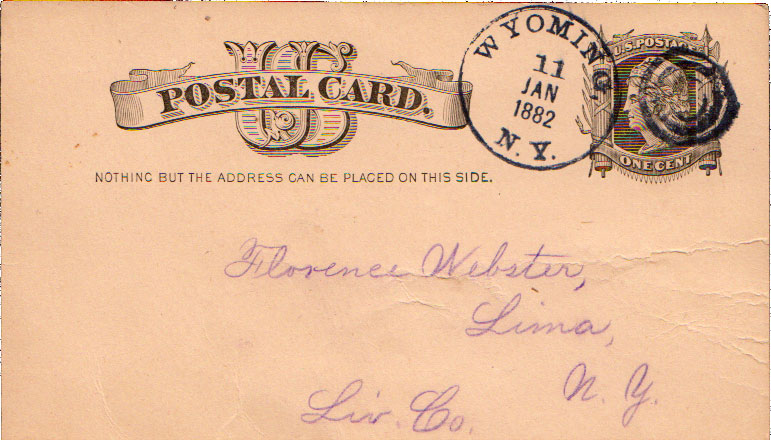 U S
POSTAL CARD.
NOTHING BUT THE ADDRESS CAN BE PLACED ON THIS SIDE.
WYOMING,
11
JAN
1882
N. Y.
U.S. POSTAGE
ONE CENT
Florence Webster,
Lima,
N. Y.
Liv. Co.